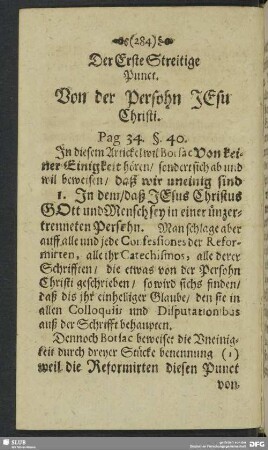 (284)
Der Erste Streitige
Punct.
Von der Persohn JEsu
Christi.
Pag 34. §. 40.
In diesem Artickel wil Borsac Von kei-
ner Einigkeit hören / sondert sich ab und
wil beweisen / daß wir uneinig sind
1. In dem / daß JEsus Christus
GOtt und Mensch sey in einer unzer-
trenneten Persohn. Man schlage aber
auff alle und jede Confessiones der Refor-
mirten, alle ihr Catechismos, alle derer
Schrifften / die etwas von der Persohn
Christi geschrieben / so wird sichs finden /
daß dis ihr einhelliger Glaube / den sie in
allen Colloquiis und Disputationibus
auß der Schrifft behaupten.
Dennoch Borsac beweiset die Uneinig-
keit durch dreyer Stücke benennung (1)
weil die Reformirten diesen Punct
von